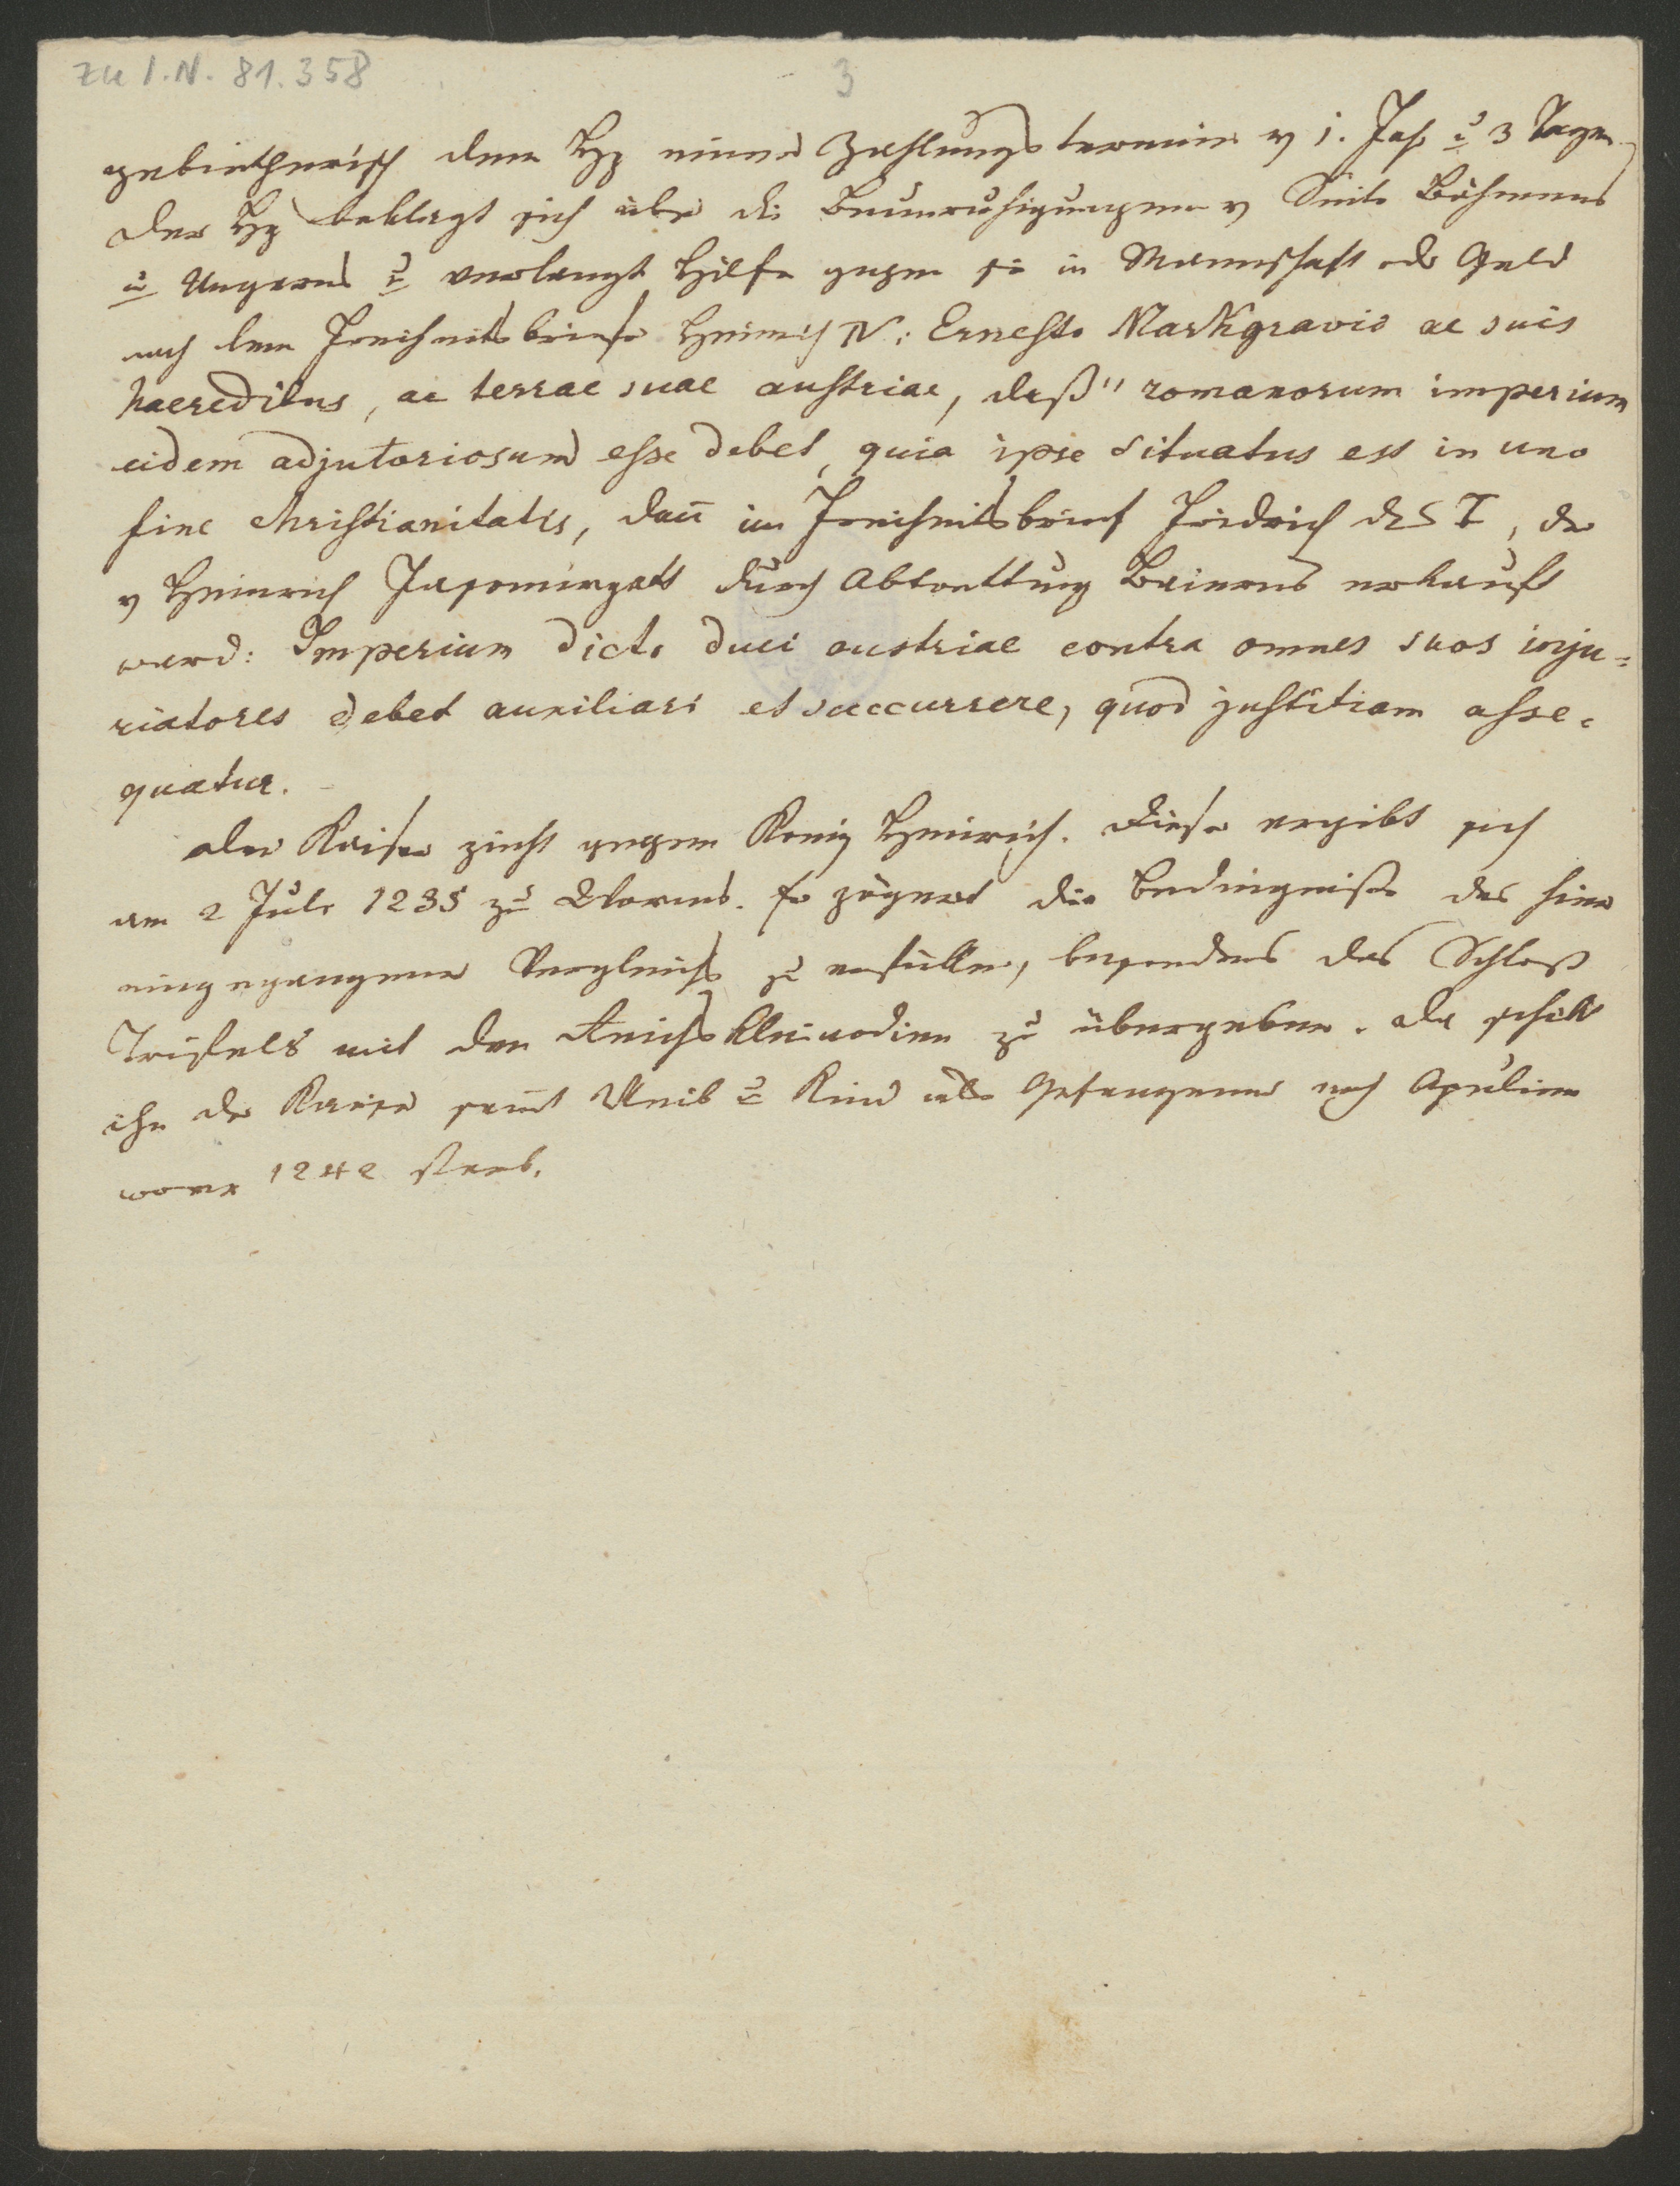 zu I.N. 81.358
3
gebietherisch dem Hz einen Zahlungstermin v 1. Jahr u 3 Tagen
Der Hz beklagt sich über die Beunruhigungen v Seite Böhmens
u Ungarns u verlangt Hilfe gegen sie in Mannschaft oder Geld
nach dem Freiheitsbriefe Heinrich IV: Ernesto Markgravio ac suis
haeredibus, ac terrae suae austriae, daß" romanorum imperium
eidem adjutoriosum esse debet, quia ipse situatus est in uno
fine christianitatis, dañ im Freiheitsbrief Friedrich des I, der
v Heinrich Jasomirgott durch Abtrettung Baierns erkauft
ward: Imperium dicto duci austriae contra omnes suos inju=
riatores debet auxiliari et succurrere, quod justitiam asse=
quatur.
Der Kaiser zieht gegen König Heinrich. Dieser ergibt sich
am 2 Juli 1235 zu Worms. Er zögert die Bedingniße des hier
eingegangenen Vergleichs zu erfüllen, besonders das Schloß
Trifels mit den Reichskleinodien zu übergeben. Da schikt
ihn der Kaiser samt Weib u Kind als Gefangenen nach Apulien
wo er 1242 starb.